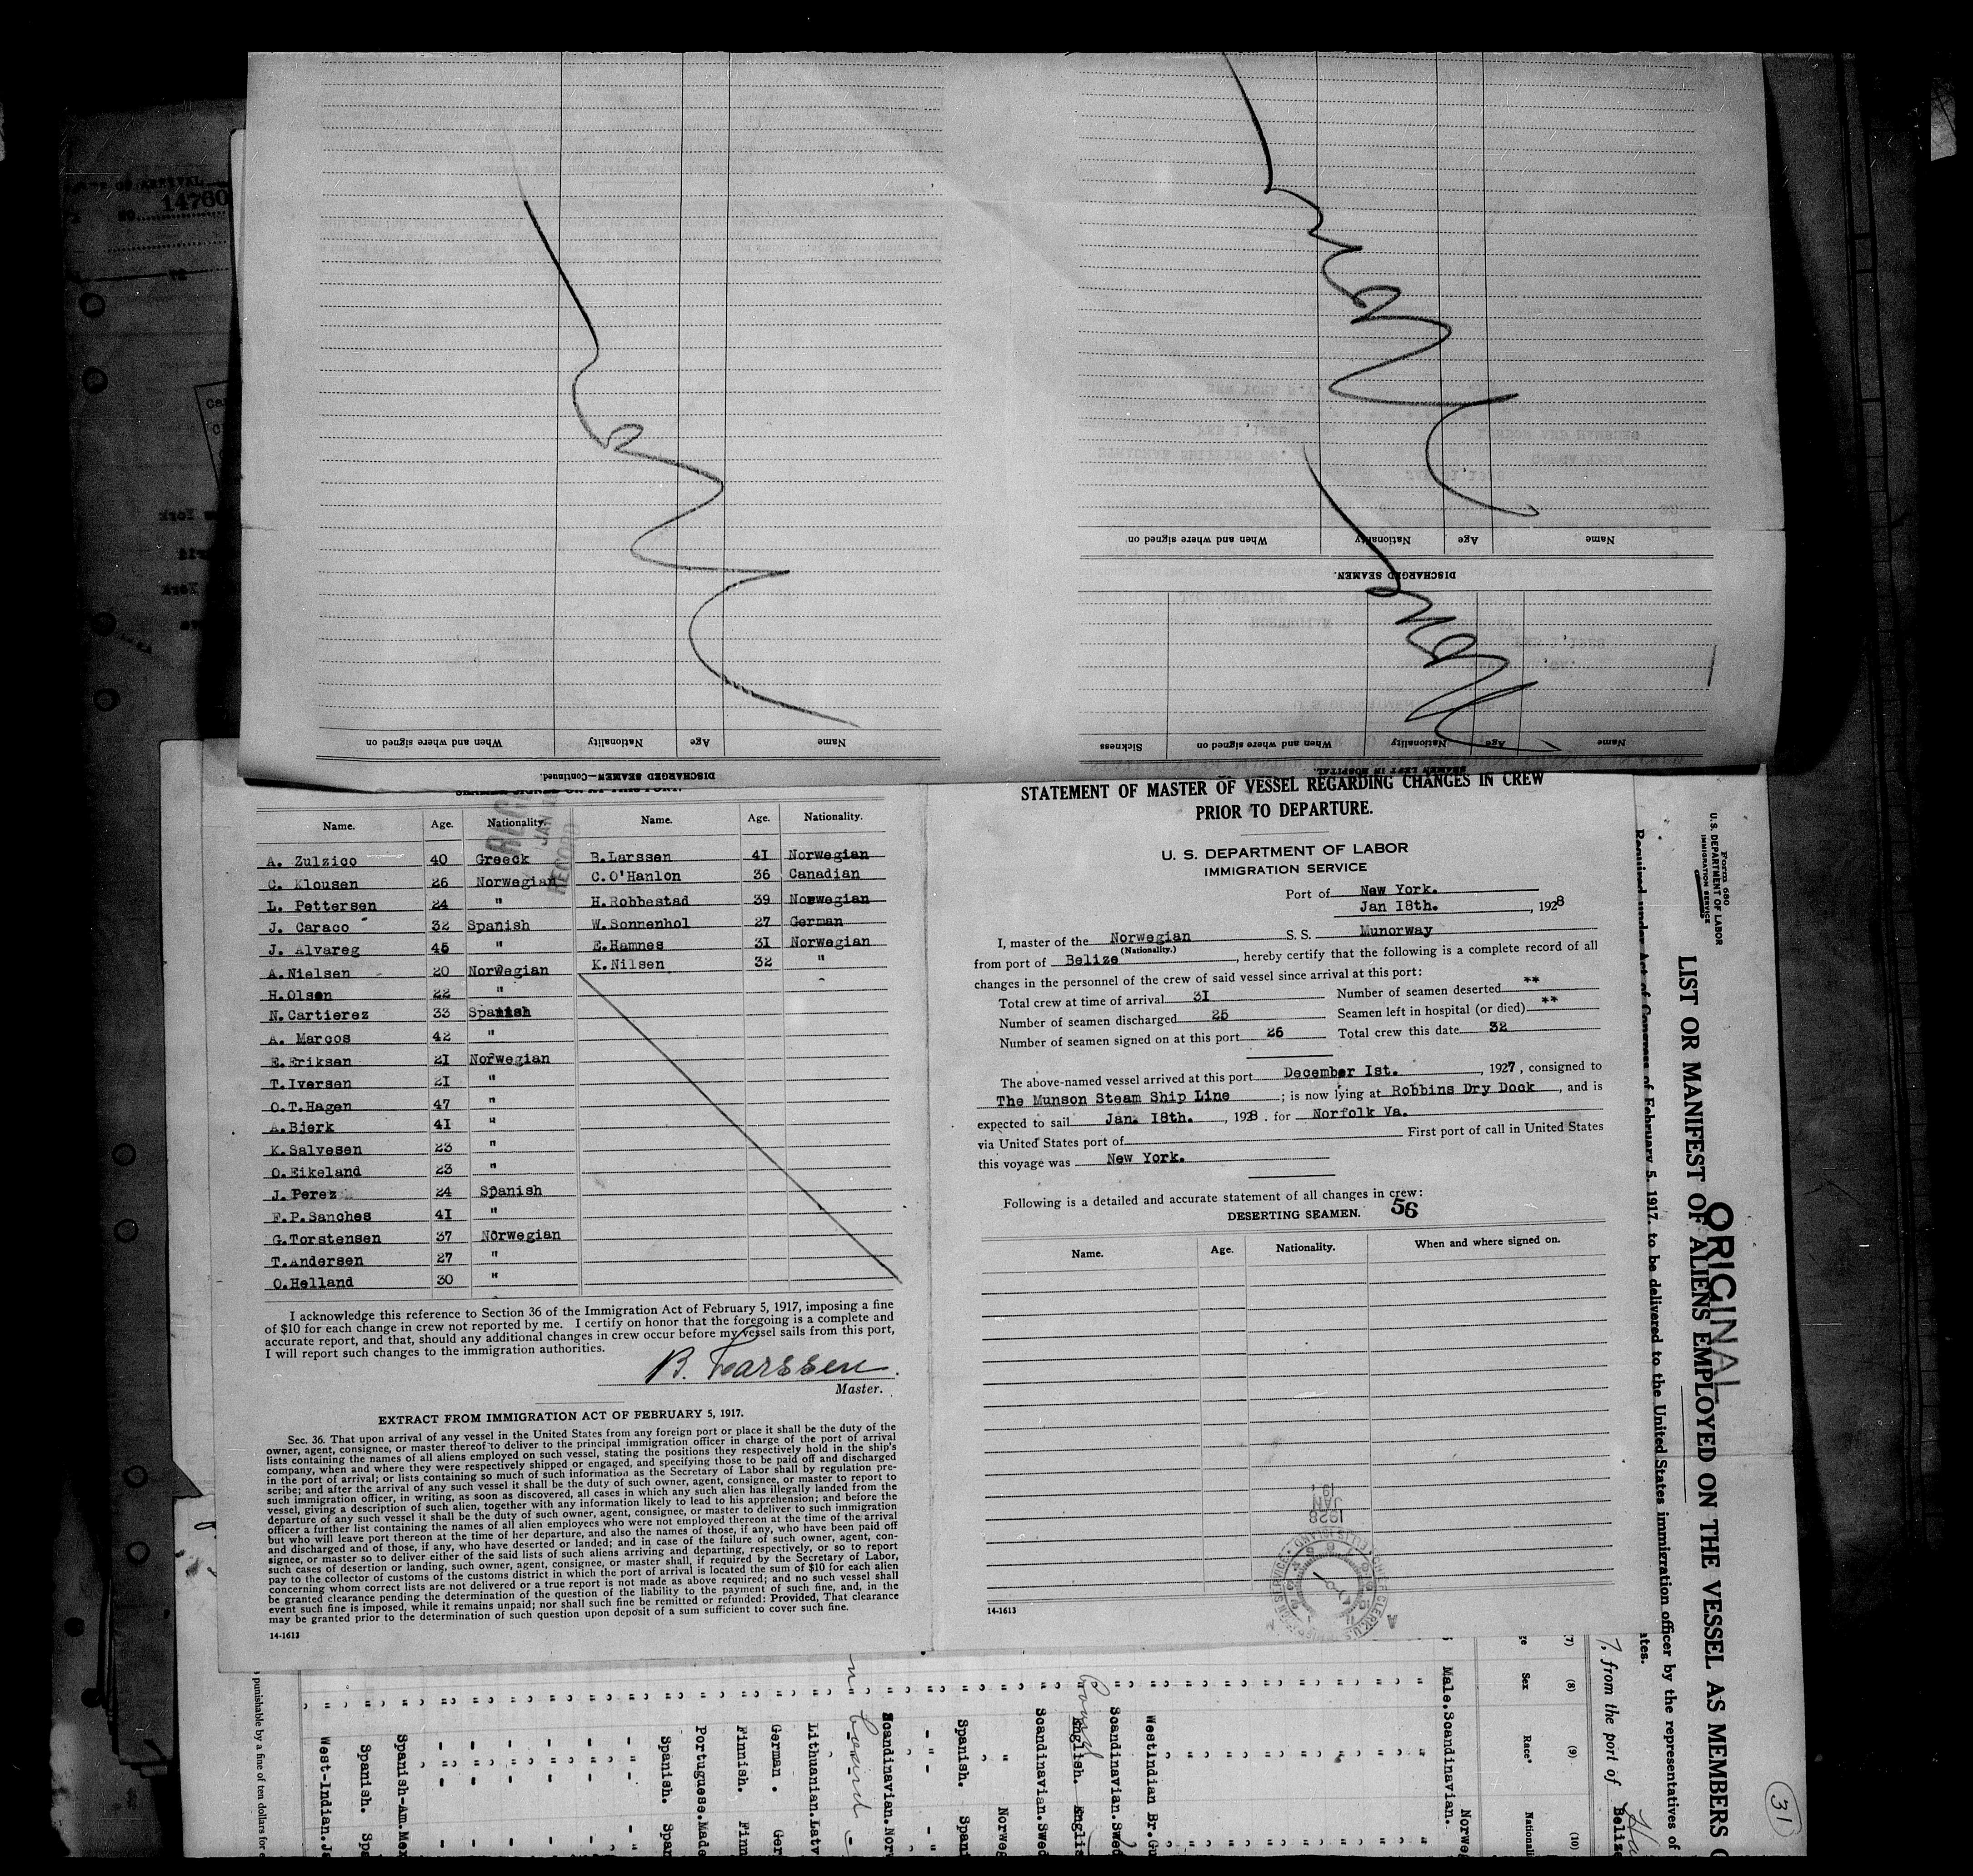 14760
DISCHARGED SEAMEN—Continued.
Name
Age
Nationality
When and where signed on
SEAMEN LEFT IN HOSPITAL.
Name
Age
Nationality
When and where signed on
Sickness
DISCHARGED SEAMEN.
Name
Age
Nationality
When and where signed on
None
Name. Age. Nationality. Name. Age. Nationality.
A. Zulzico 40 Greeck B.Larssen 41 Norwegian
C. Klousen 26 Norwegian C.O'Hanlon 36 Canadian
L. Pettersen 24 " H.Robbestad 39 Norwegian
J. Caraco 32 Spanish W.Sonnenhol 27 German
J. Alvareg 45 " E.Hamnes 31 Norwegian
A.Nielsen 20 Norwegian K.Nilsen 32 "
H.Olsen 22 "
N.Cartierez 33 Spanish
A. Marcos 42 "
E.Eriksen 21 Norwegian
T.Iversen 21 "
O.T.Hagen 47 "
A.Bjerk 41 "
K.Salvesen 23 "
O.Eikeland 23 "
J.Perez 24 Spanish
F.P.Sanches 41 "
G.Torstensen 37 Norwegian
T.Andersen 27 "
O.Helland 30 "
I acknowledge this reference to Section 36 of the Immigration Act of February 5, 1917, imposing a fine
of $10 for each change in crew not reported by me. I certify on honor that the foregoing is a complete and
accurate report, and that, should any additional changes in crew occur before my vessel sails from this port,
I will report such changes to the immigration authorities.
B. Larssen.
Master.
EXTRACT FROM IMMIGRATION ACT OF FEBRUARY 5, 1917.
Sec. 36. That upon arrival of any vessel in the United States from any foreign port or place it shall be the duty of the
owner, agent, consignee, or master thereof to deliver to the principal immigration officer in charge of the port of arrival
lists containing the names of all aliens employed on such vessel, stating the positions they respectively hold in the ship's
company, when and where they were respectively shipped or engaged, and specifying those to be paid off and discharged
in the port of arrival; or lists containing so much of such information as the Secretary of Labor shall by regulation pre-
scribe; and after the arrival of any such vessel it shall be the duty of such owner, agent, consignee, or master to report to
such immigration officer, in writing, as soon as discovered, all cases in which any such alien has illegally landed from the
vessel, giving a description of such alien, together with any information likely to lead to his apprehension; and before the
departure of any such vessel it shall be the duty of such owner, agent, consignee, or master to deliver to such immigration
officer a further list containing the names of all alien employees who were not employed thereon at the time of the arrival
but who will leave port thereon at the time of her departure, and also the names of those, if any, who have been paid off
and discharged and of those, if any, who have deserted or landed; and in case of the failure of such owner, agent, con-
signee, or master so to deliver either of the said lists of such aliens arriving and departing, respectively, or so to report
such cases of desertion or landing, such owner, agent, consignee, or master shall, if required by the Secretary of Labor,
pay to the collector of customs of the customs district in which the port of arrival is located the sum of $10 for each alien
concerning whom correct lists are not delivered or a true report is not made as above required; and no such vessel shall
be granted clearance pending the determination of the question of the liability to the payment of such fine, and, in the
event such fine is imposed, while it remains unpaid; nor shall such fine be remitted or refunded: Provided, That clearance
may be granted prior to the determination of such question upon deposit of a sum sufficient to cover such fine.
14-1613
STATEMENT OF MASTER OF VESSEL REGARDING CHANGES IN CREW
PRIOR TO DEPARTURE.
U. S. DEPARTMENT OF LABOR
IMMIGRATION SERVICE
Port of New York.
Jan 18th. , 1928
I, master of the Norwegian S. S. Munorway
(Nationality.)
from port of Belize , hereby certify that the following is a complete record of all
changes in the personnel of the crew of said vessel since arrival at this port:
Total crew at time of arrival 31 Number of seamen deserted **
Number of seamen discharged 25 Seamen left in hospital (or died) **
Number of seamen signed on at this port 26 Total crew this date 32
The above-named vessel arrived at this port December 1st. , 1927, consigned to
The Munson Steam Ship Line ; is now lying at Robbins Dry Dock , and is
expected to sail Jan. 18th. , 1928 . for Norfolk Va.
via United States port of First port of call in United States
this voyage was New York.
Following is a detailed and accurate statement of all changes in crew:
DESERTING SEAMEN. 56
Name. Age. Nationality. When and where signed on.
1928
JAN
14-1613
Form 680
U. S. DEPARTMENT OF LABOR
IMMIGRATION SERVICE
ORIGINAL
LIST OR MANIFEST OF ALIENS EMPLOYED ON THE VESSEL AS MEMBERS
Required under Act of Congress of February 5, 1917, to be delivered to the United States immigration officer by the representatives of
, from the port of Belize
31
(7) (8) (9) (10)
Sex Race*
Male. Scandinavian. Norweg
West Indian Br.Gu
Scandinavian. Swed
English. Englis
Scandinavian. Swed
Norweg
Spanish. Spani
Scandinavian. Norw
Lithuanian. Latv
German . Ger
Finnish. Finn
Portuguese. Made
Spanish. Span
Spanish-Am. Mex
Spanish. Spa
West-Indian. Ja
punishable by a fine of ten dollars for